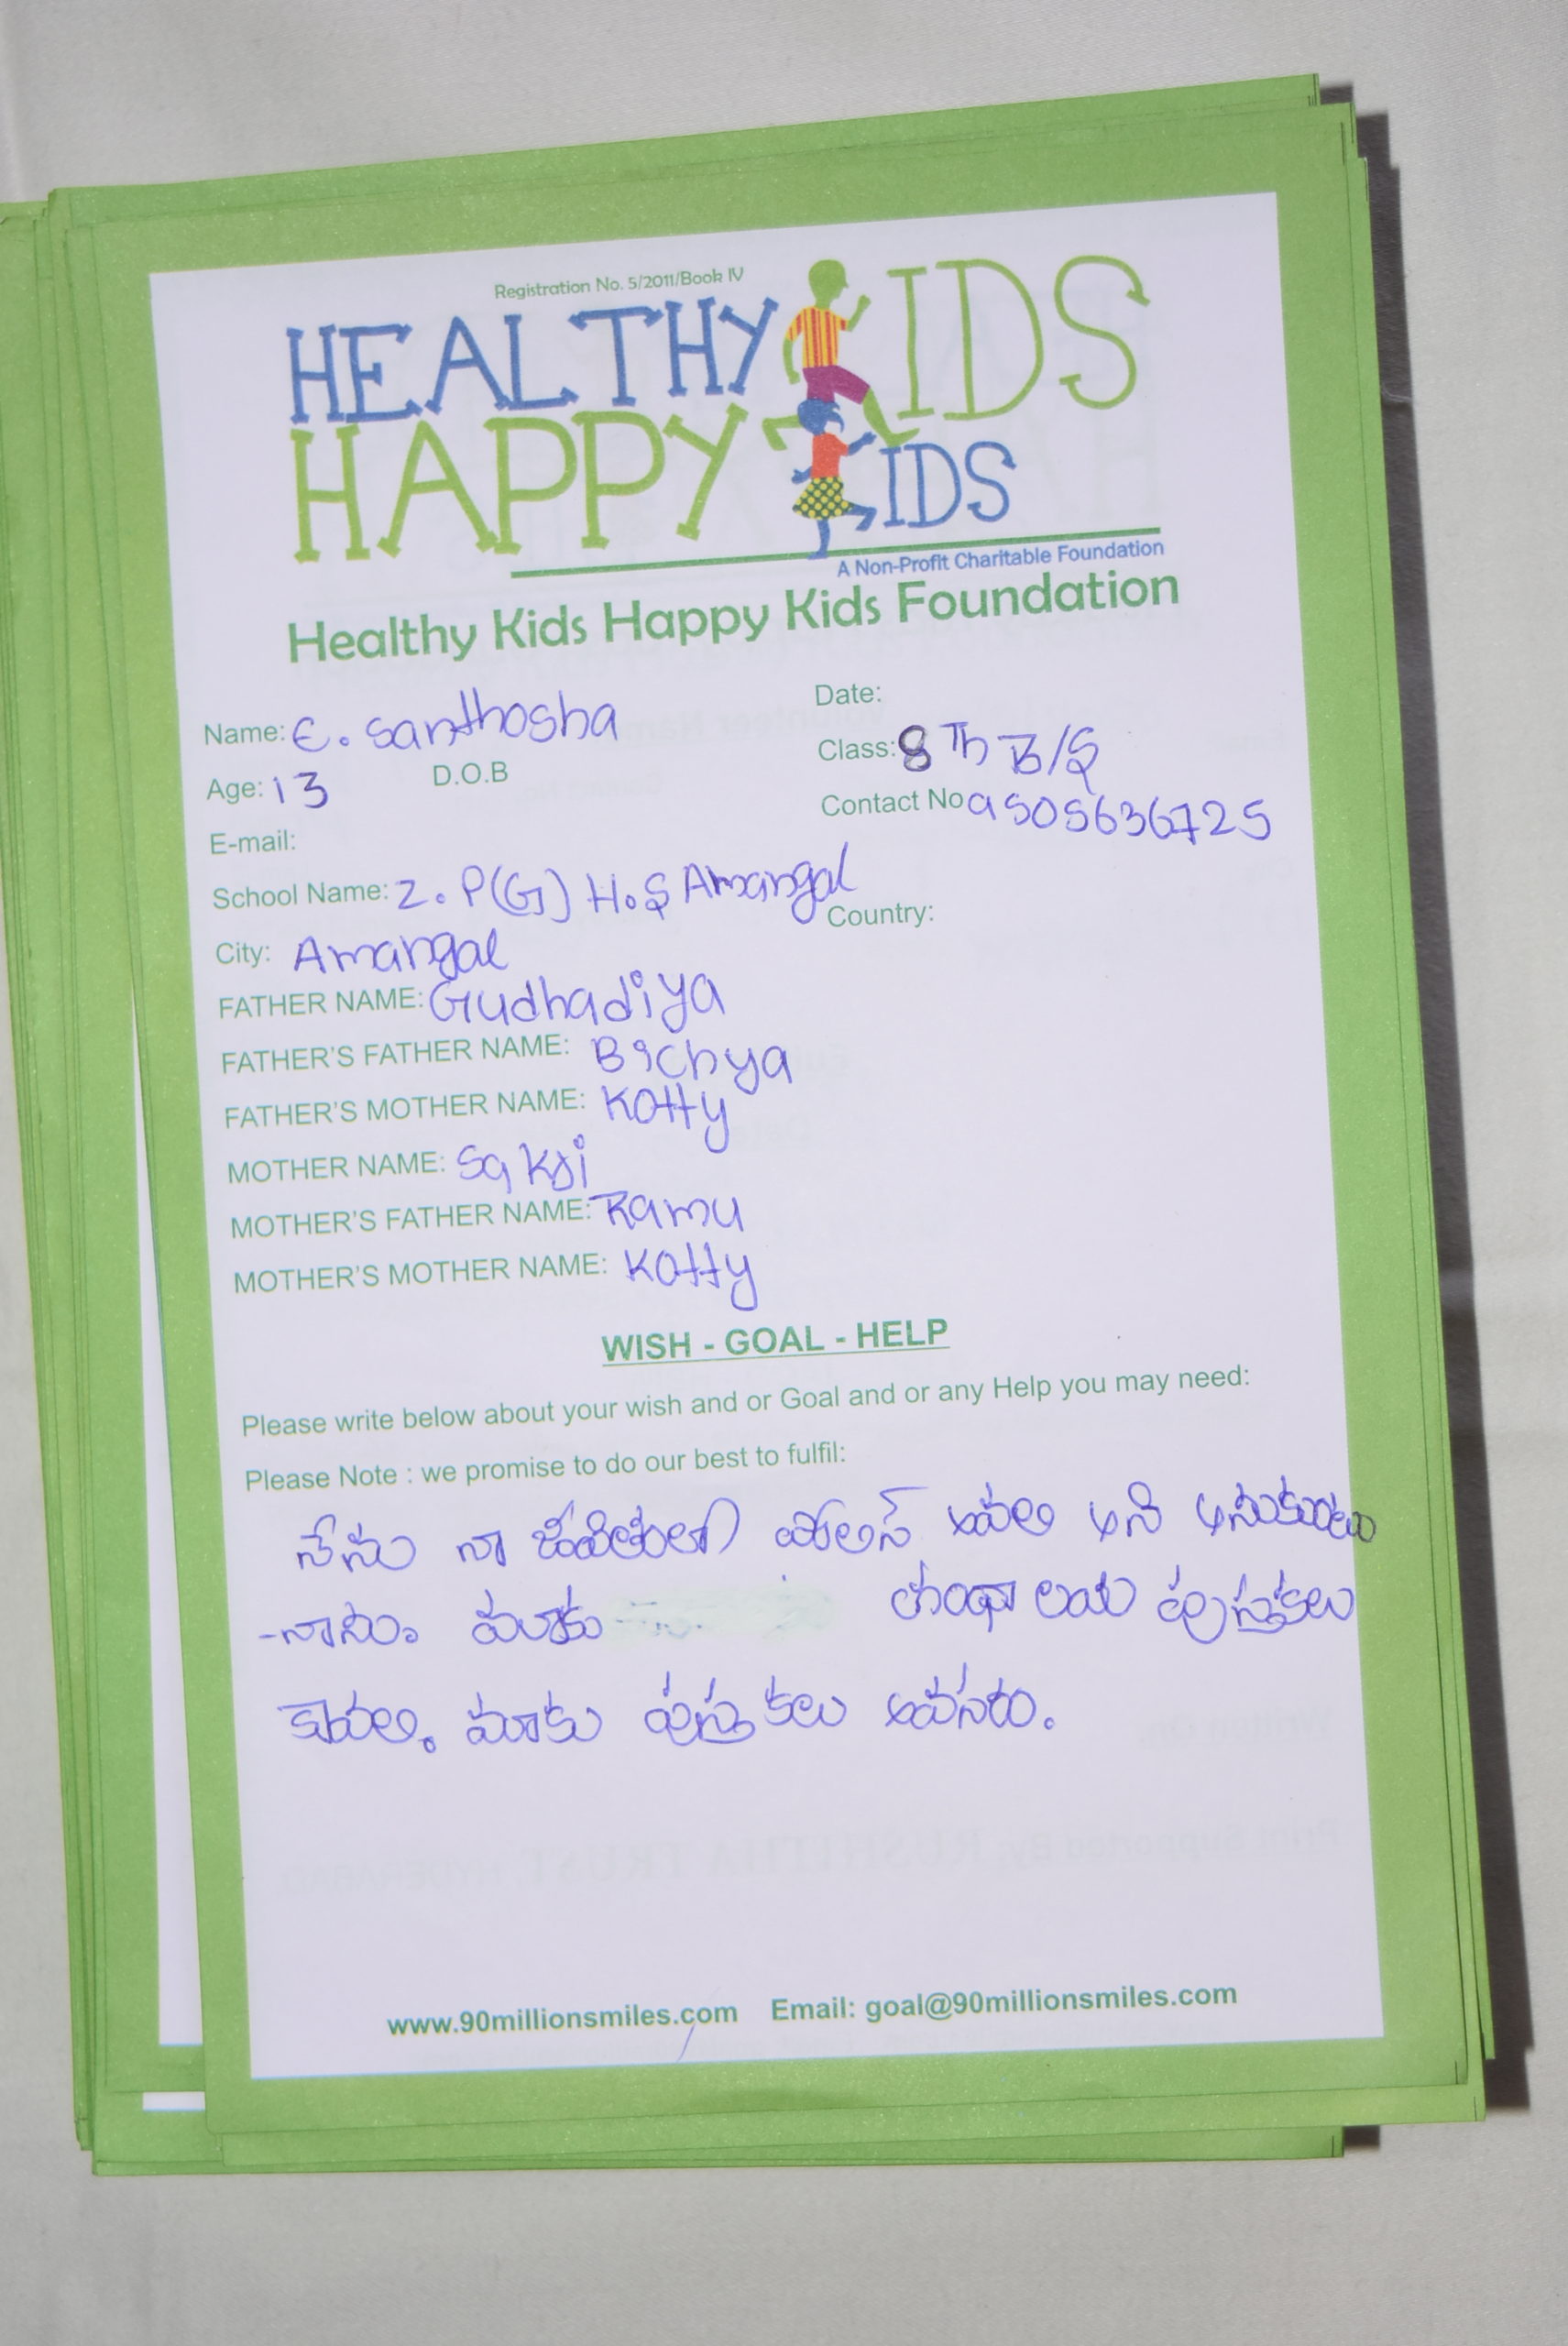 Registration No. 5/2011/Book IV
HEALTHY KIDS
HAPPY KIDS
A Non-Profit Charitable Foundation
Healthy Kids Happy Kids Foundation
Name: E. Santhosha Date:
Age: 13 D.O.B Class: 8 Th B/S
E-mail: Contact No 9505636725
School Name: Z. P(G) H.S Amangal
City: Amangal Country:
FATHER NAME: Gudhadiya
FATHER'S FATHER NAME: Bichya
FATHER'S MOTHER NAME: Kotty
MOTHER NAME:
MOTHER'S FATHER NAME: Ramu
MOTHER'S MOTHER NAME: Kotty
WISH - GOAL - HELP
Please write below about your wish and or Goal and or any Help you may need:
Please Note : we promise to do our best to fulfil:
నేను నా జీవితంలో పోలిస్ అవలి అని అనుకుంటు
-నాను. మాకు పుస్తకలు
కావలి. మాకు పుస్తకలు అవసరం.
www.90millionsmiles.com Email: goal@90millionsmiles.com